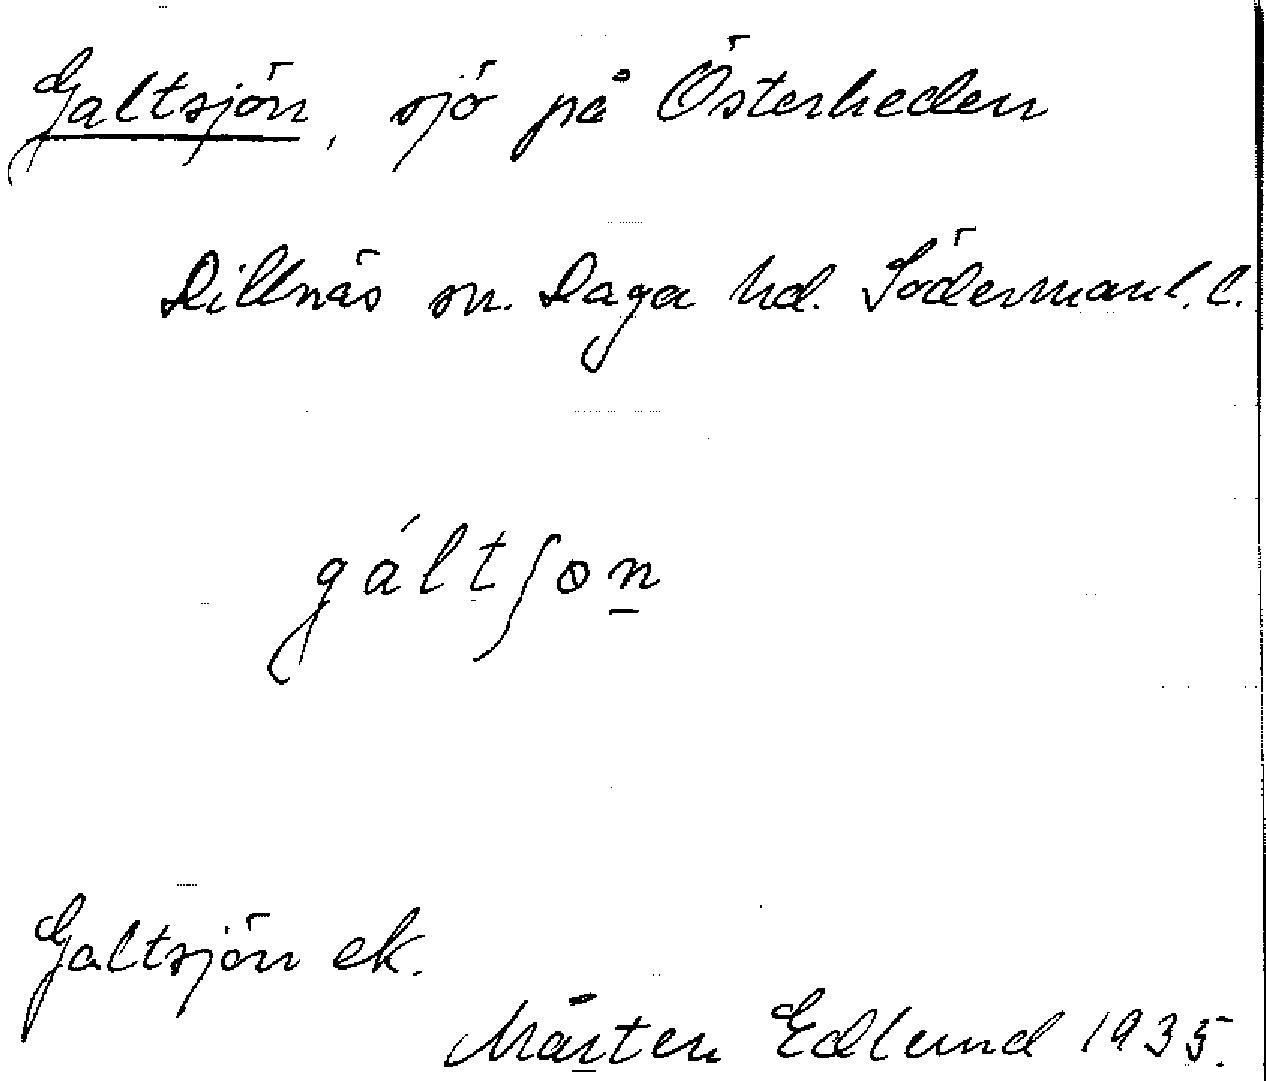 Galtsjön, sjö på Österheden
Dillnäs sn. Daga hd. Södermanl. l.
gáltʃɵn̲
Galtsjön ek.
Mårten Edlund 1935.